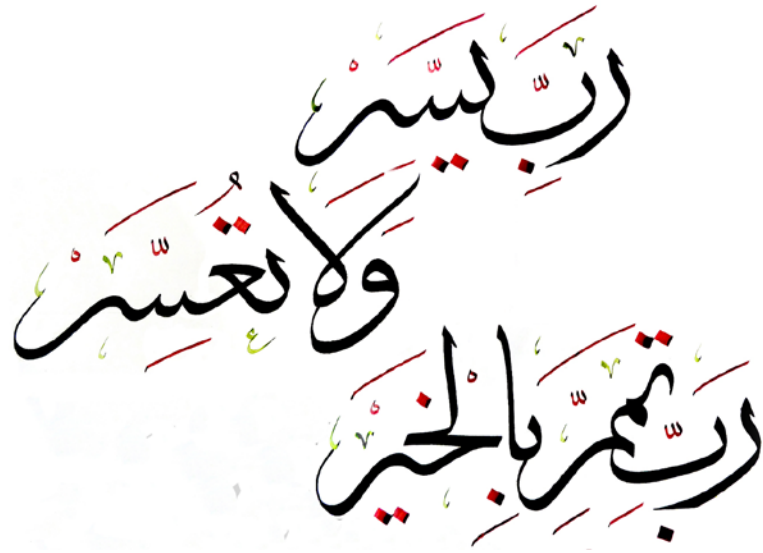 رَبِّ يَسِّرْ
وَلَا تُعَسِّرْ
رَبِّ تَمِّمْ بِالْخَيْرِ